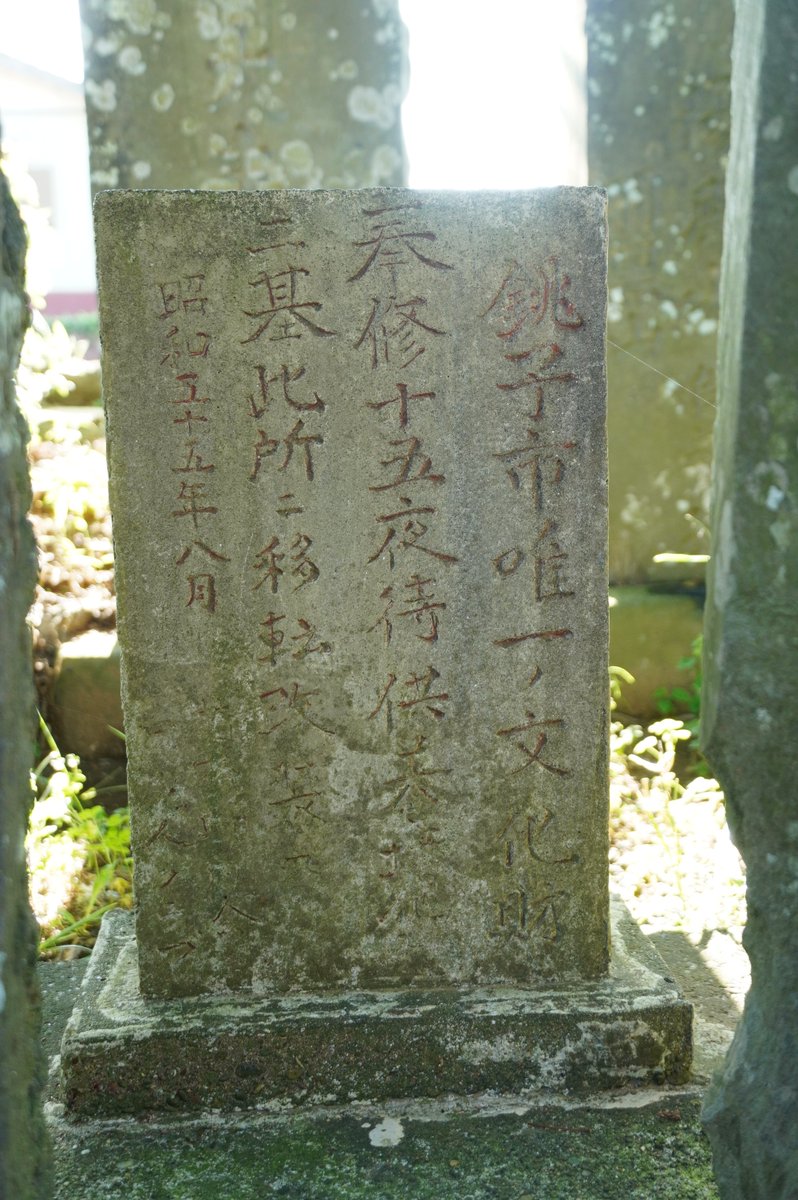 銚子市唯一ノ文化財
奉修十五夜待供養
二基此所ニ移転改装
昭和五十五年八月